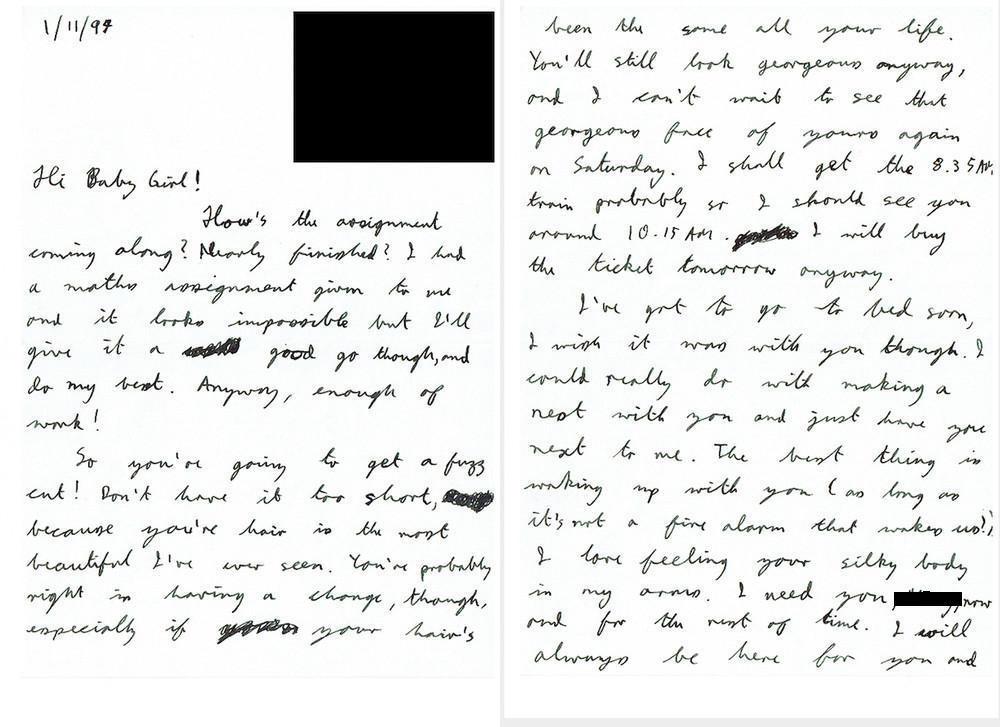 1/11/97
Hi Baby Girl!
How's the assignment
coming along? Nearly finished? I had
a maths assignment given to me
and it looks impossible but I'll
give it a good go though, and
do my best. Anyway, enough of
work!
So you're going to get a fuzz
cut! Don't have it too short,
because you're hair is the most
beautiful I've ever seen. You're probably
right in having a change, though,
especially if your hair's
been the same all your life.
You'll still look georgeous anyway,
and I can't wait to see that
georgeous face of yours again
on Saturday. I shall get the 8.35AM
train probably so I should see you
around 10.15 AM. I will buy
the ticket tomorrow anyway.
I've got to go to bed soon,
I wish it was with you though. I
could really do with making a
nest with you and just have you
next to me. The best thing is
waking up with you (as long as
it's not a fire alarm that wakes us!).
I love feeling your silky body
in my arms. I need you, now
and for the rest of time. I will
always be here for you and